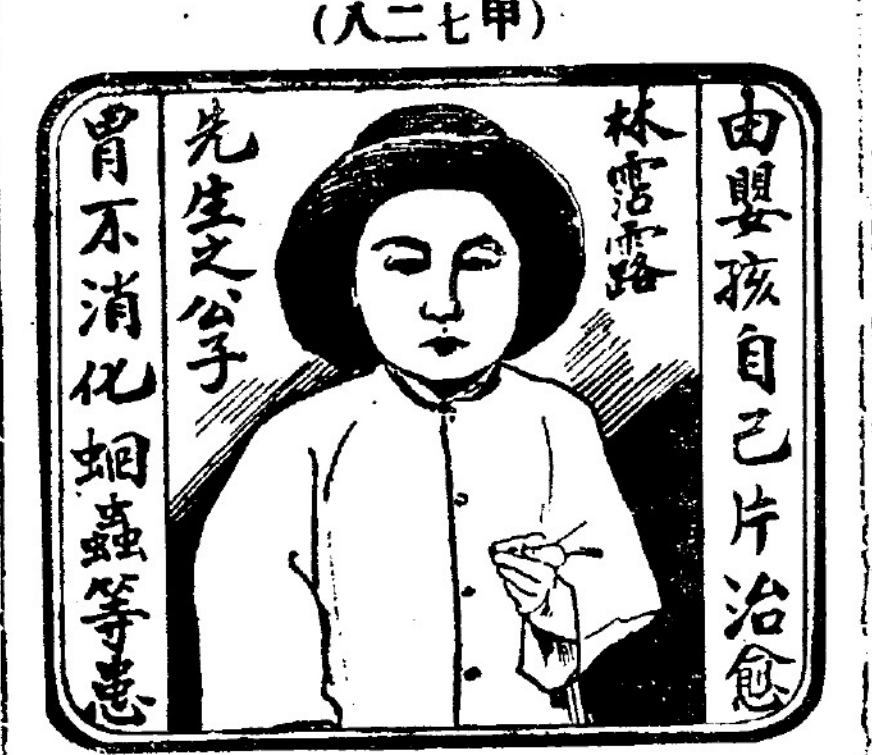 (甲七二八)
由嬰孩自己片治愈
林霑露
先生之公子
胃不消化蛔蟲等患